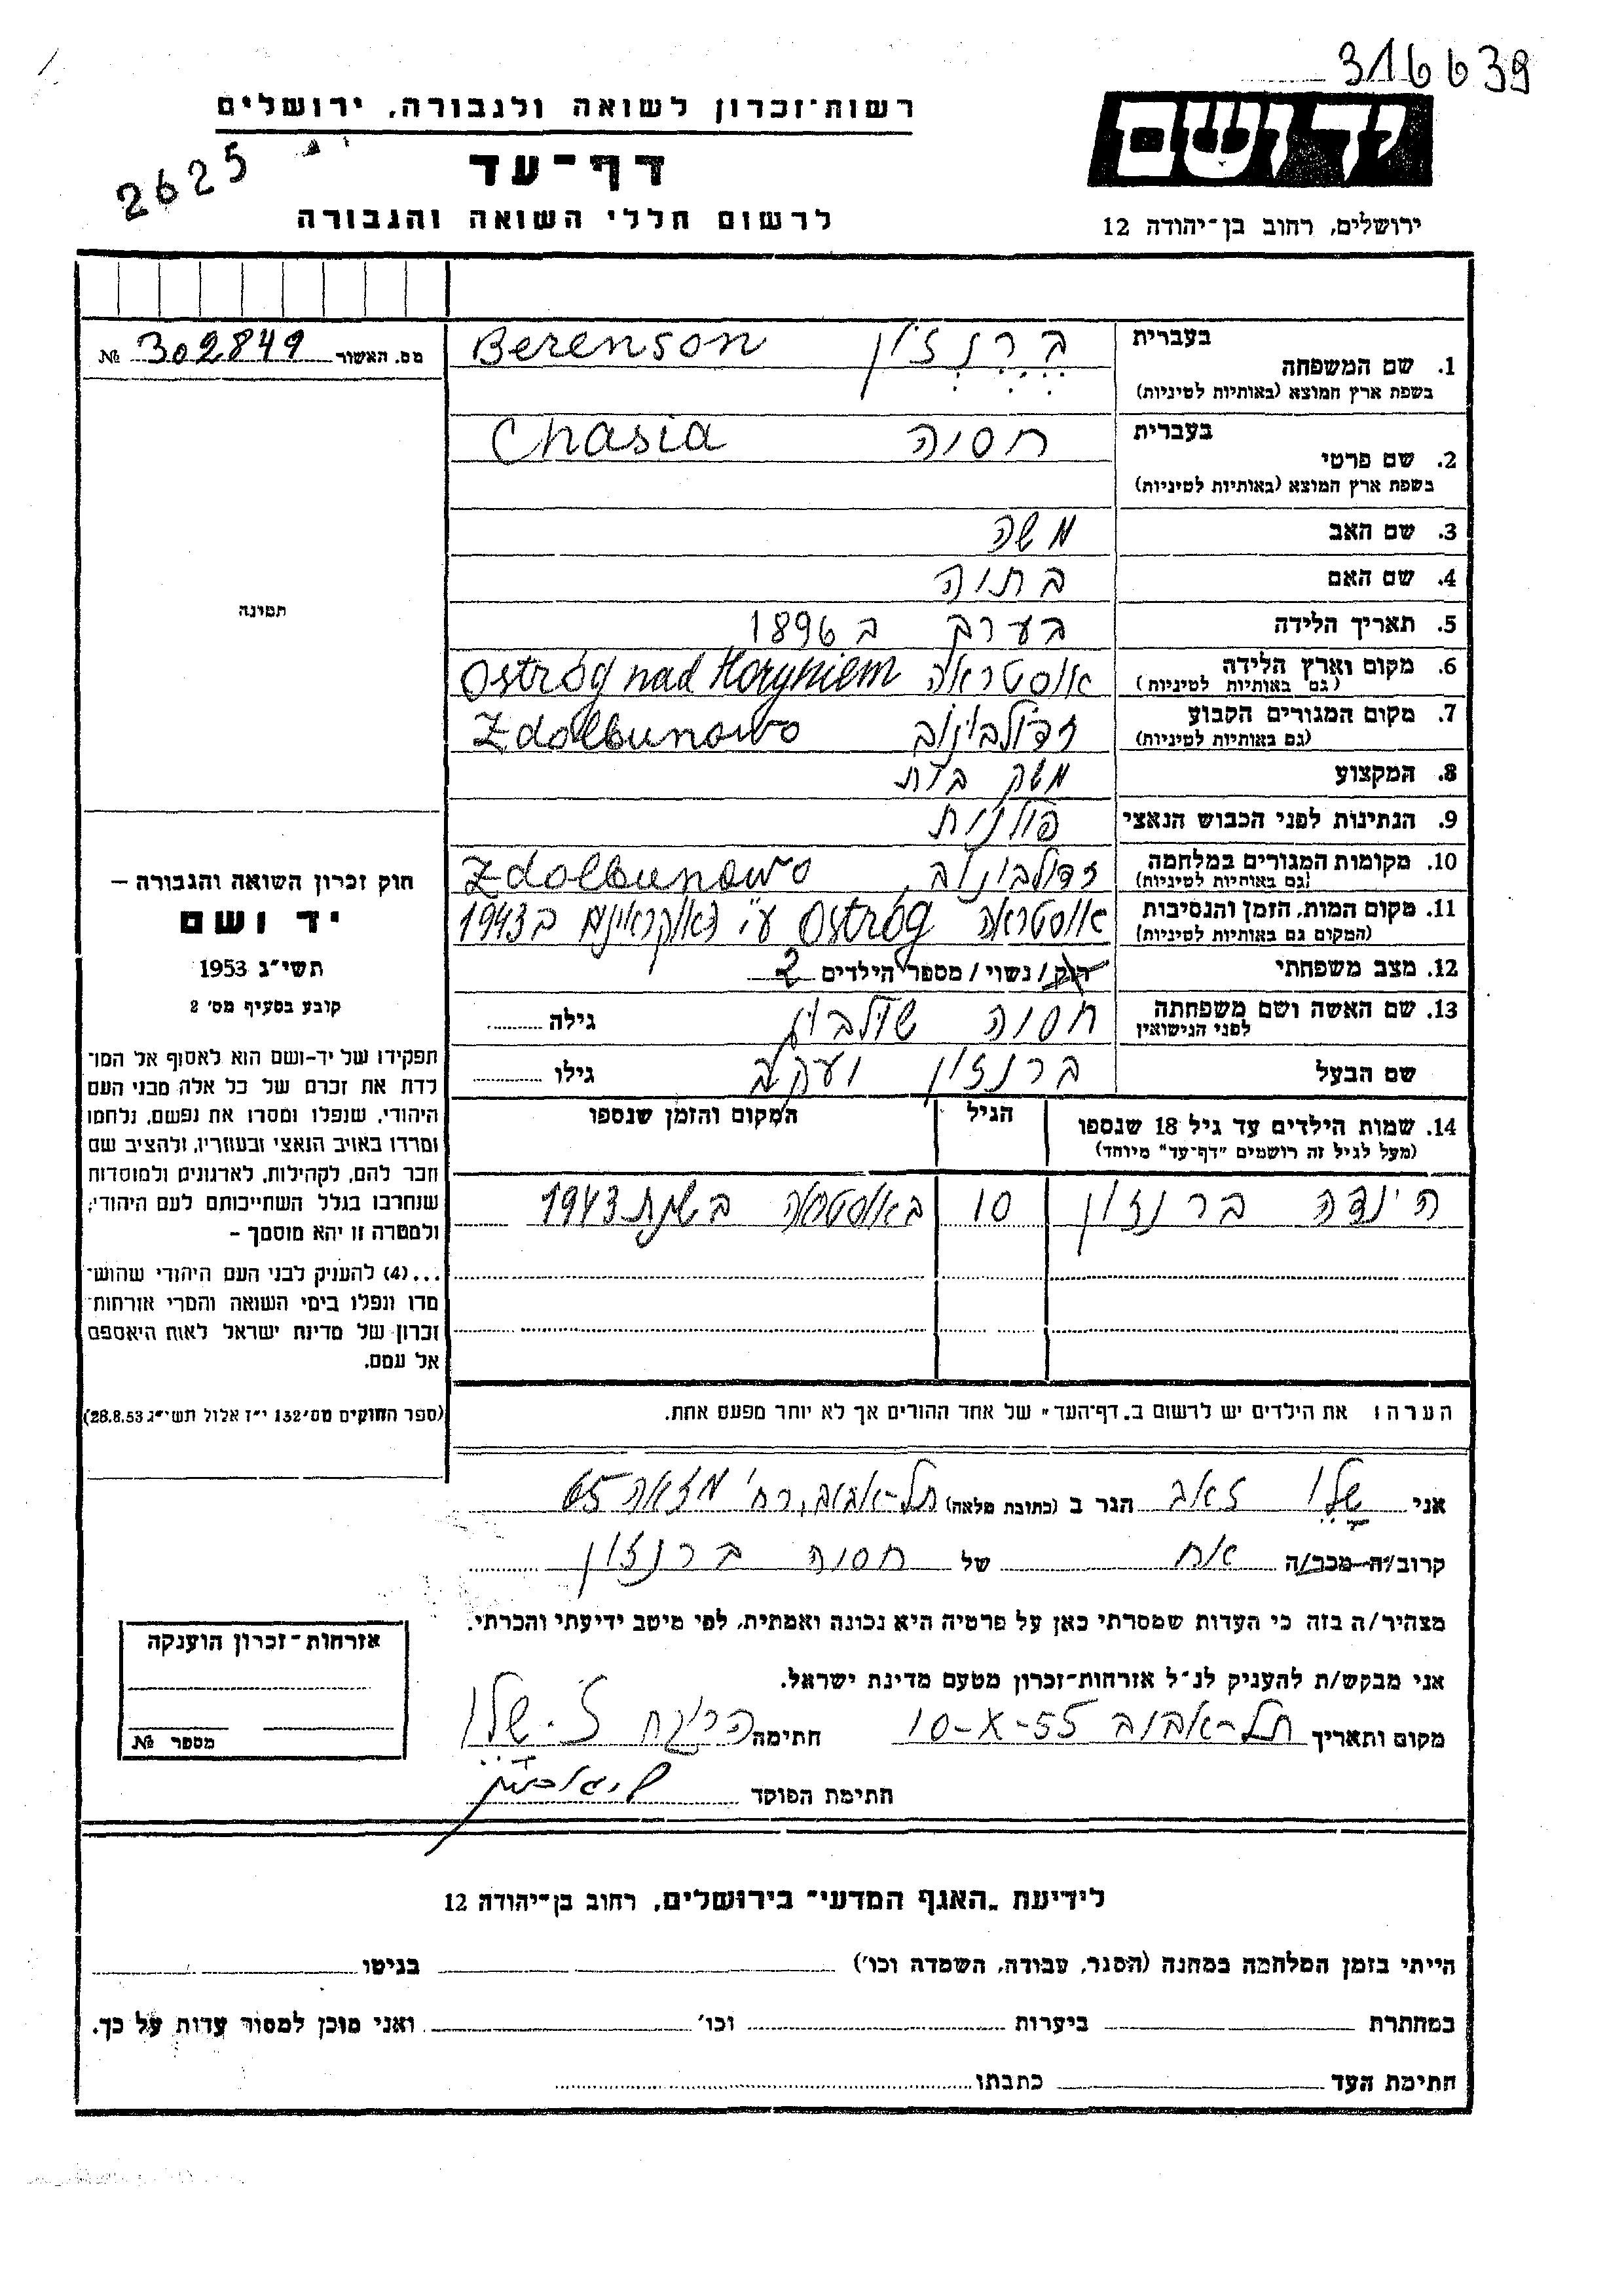 316639
רשות-זכרון לשואה ולגבורה, ירושלים
יד ושם
דף-עד
2625
לרשום חללי השואה והגבורה
ירושלים, רחוב בן-יהודה 12
מס. האשור 302849 №
1. שם המשפחה בעברית ברנזון Berenson
בשפת ארץ המוצא (באותיות לטיניות)
2. שם פרטי בעברית חסיה Chasia
בשפת ארץ המוצא (באותיות לטיניות)
3. שם האב משה
4. שם האם בתיה
5. תאריך הלידה בערך ב 1896
6. מקום וארץ הלידה אוסטראה Ostróg nad Horyniem
(גם באותיות לטיניות)
7. מקום המגורים הקבוע זדולבונוב Zdolbunowo
(גם באותיות לטיניות)
8. המקצוע משק בית
9. הנתינות לפני הכבוש הנאצי פולנית
10. מקומות המגורים במלחמה זדולבונוב Zdolbunowo
(גם באותיות לטיניות)
11. מקום המות, הזמן והנסיבות אוסטראה Ostróg ע"י האוקראינים ב 1943
(המקום גם באותיות לטיניות)
12. מצב משפחתי רוק / נשוי / מספר הילדים 2
13. שם האשה ושם משפחתה חסיה גילה
לפני הנישואין
שם הבעל ברנזון יעקב גילו
14. שמות הילדים עד גיל 18 שנספו הגיל המקום והזמן שנספו
(מעל לגיל זה רושמים "דף-עד" מיוחד)
הינדה ברנזון 10 באוסטראה בשנת 1943
הערה: את הילדים יש לרשום ב„דף-העד" של אחד ההורים אך לא יותר מפעם אחת.
תמונה
חוק זכרון השואה והגבורה –
יד ושם
תשי"ג 1953
קובע בסעיף מס' 2
תפקידו של יד-ושם הוא לאסוף אל המו־
לדת את זכרם של כל אלה מבני העם
היהודי, שנפלו ומסרו את נפשם, נלחמו
ומרדו באויב הנאצי ובעוזריו, ולהציב שם
וזכר להם, לקהילות, לארגונים ולמוסדות
שנחרבו בגלל השתייכותם לעם היהודי;
ולמטרה זו יהא מוסמך –
...(4) להעניק לבני העם היהודי שהוש־
מדו ונפלו בימי השואה והמרי אזרחות־
זכרון של מדינת ישראל לאות היאספם
אל עמם.
(ספר החוקים מס' 132 י"ז אלול תשי"ג 28.8.53)
אני שלו זאב הגר ב (כתובת מלאה) תל-אביב, רח' מזאה 65
קרוב/ה מכר/ה אח של חסיה ברנזון
מצהיר/ה בזה כי העדות שמסרתי כאן על פרטיה היא נכונה ואמתית, לפי מיטב ידיעתי והכרתי.
אני מבקש/ת להעניק לנ"ל אזרחות-זכרון מטעם מדינת ישראל.
מקום ותאריך תל-אביב 10-X-55 חתימה ז. שלו
חתימת הפוקד
אזרחות-זכרון הוענקה
מספר №
לידיעת „האגף המדעי" בירושלים, רחוב בן-יהודה 12
הייתי בזמן המלחמה במחנה (הסגר, עבודה, השמדה וכו') בגיטו
במחתרת ביערות וכו' ואני מוכן למסור עדות על כך.
חתימת העד כתבתו